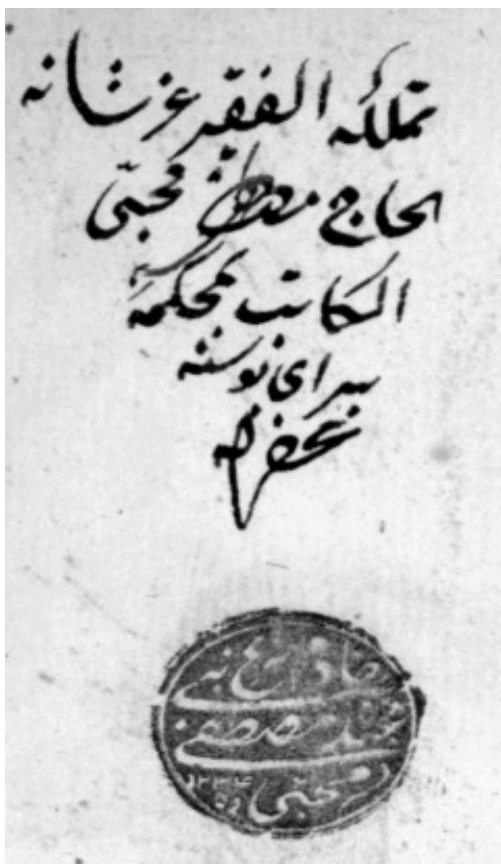 تملكه الفقير عز شانه
الحاج مصطفى محبّى
الكاتب بمحكمة
سراى بوسنه
غفر له
شرع نبى
مصطفى
محبّى
١٢٣٤